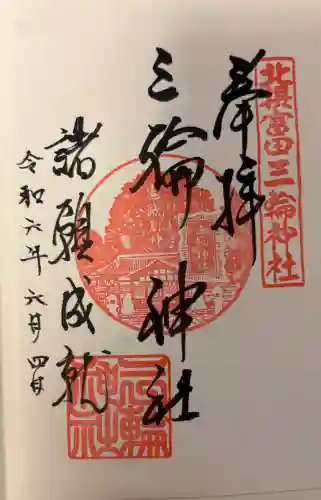 北摂富田三輪神社
奉拝
三輪神社
諸願成就
令和六年六月四日
三輪神社